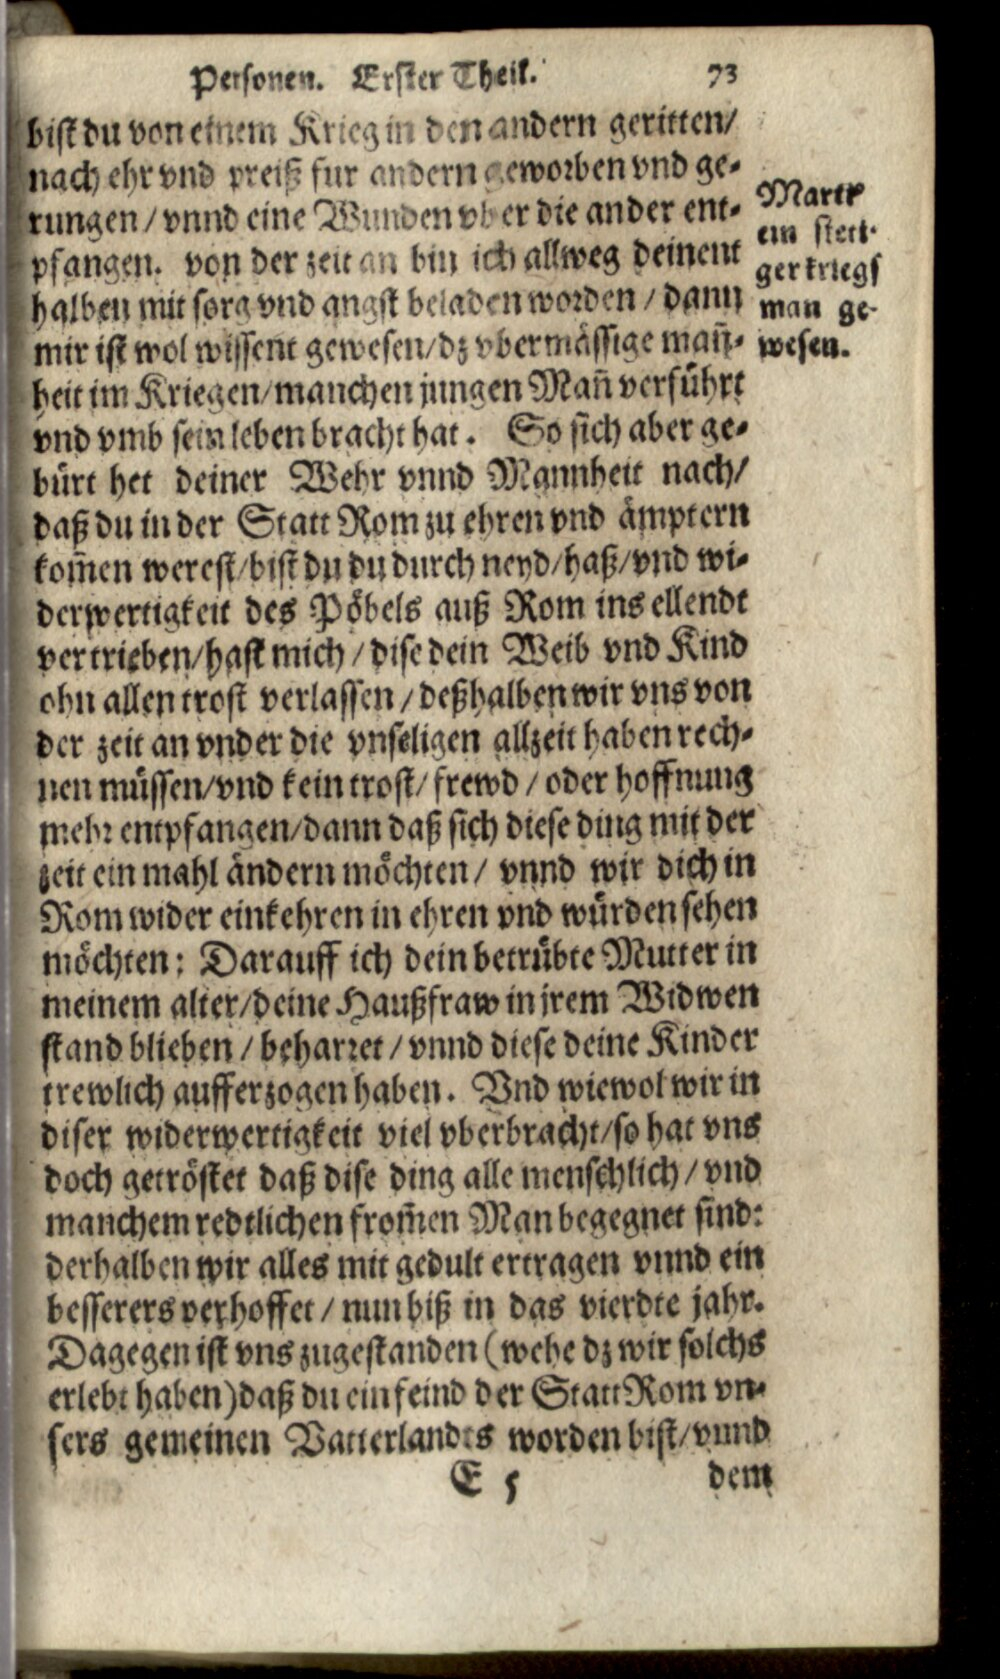 Personen. Erster Theil. 73
bist du von einem Krieg in den andern geritten/
nach ehr vnd preiß fur andern geworben vnd ge-
rungen / vnnd eine Wunden vber die ander ent-
pfangen. von der zeit an bin ich allweg deinent
halben mit sorg vnd angst beladen worden / dann
mir ist wol wissent gewesen/dz vbermässige mañ-
heit im Kriegen/manchen jungen Mañ verführt
vnd vmb sein leben bracht hat. So sich aber ge-
bürt het deiner Wehr vnnd Mannheit nach/
daß du in der Statt Rom zu ehren vnd ämptern
kom̃en werest/bist du du durch neyd/haß/vnd wi-
derwertigkeit des Pöbels auß Rom ins ellendt
vertrieben/hast mich / dise dein Weib vnd Kind
ohn allen trost verlassen / deßhalben wir vns von
der zeit an vnder die vnseligen allzeit haben rech-
nen müssen/vnd kein trost/ frewd / oder hoffnung
mehr entpfangen/dann daß sich diese ding mit der
zeit ein mahl ändern möchten / vnnd wir dich in
Rom wider einkehren in ehren vnd würden sehen
möchten: Darauff ich dein betrübte Mutter in
meinem alter/deine Haußfraw in jrem Widwen
stand blieben / beharret / vnnd diese deine Kinder
trewlich aufferzogen haben. Vnd wiewol wir in
diser widerwertigkeit viel vberbracht/so hat vns
doch getröstet daß dise ding alle menschlich / vnd
manchem redtlichen from̃en Man begegnet sind:
derhalben wir alles mit gedult ertragen vnnd ein
besserers verhoffet / nun biß in das vierdte jahr.
Dagegen ist vns zugestanden (wehe dz wir solchs
erlebt haben) daß du ein feind der Statt Rom vn-
sers gemeinen Vatterlandts worden bist/vnnd
E 5 dem
Martz
ein stett-
ger kriegs
man ge-
wesen.